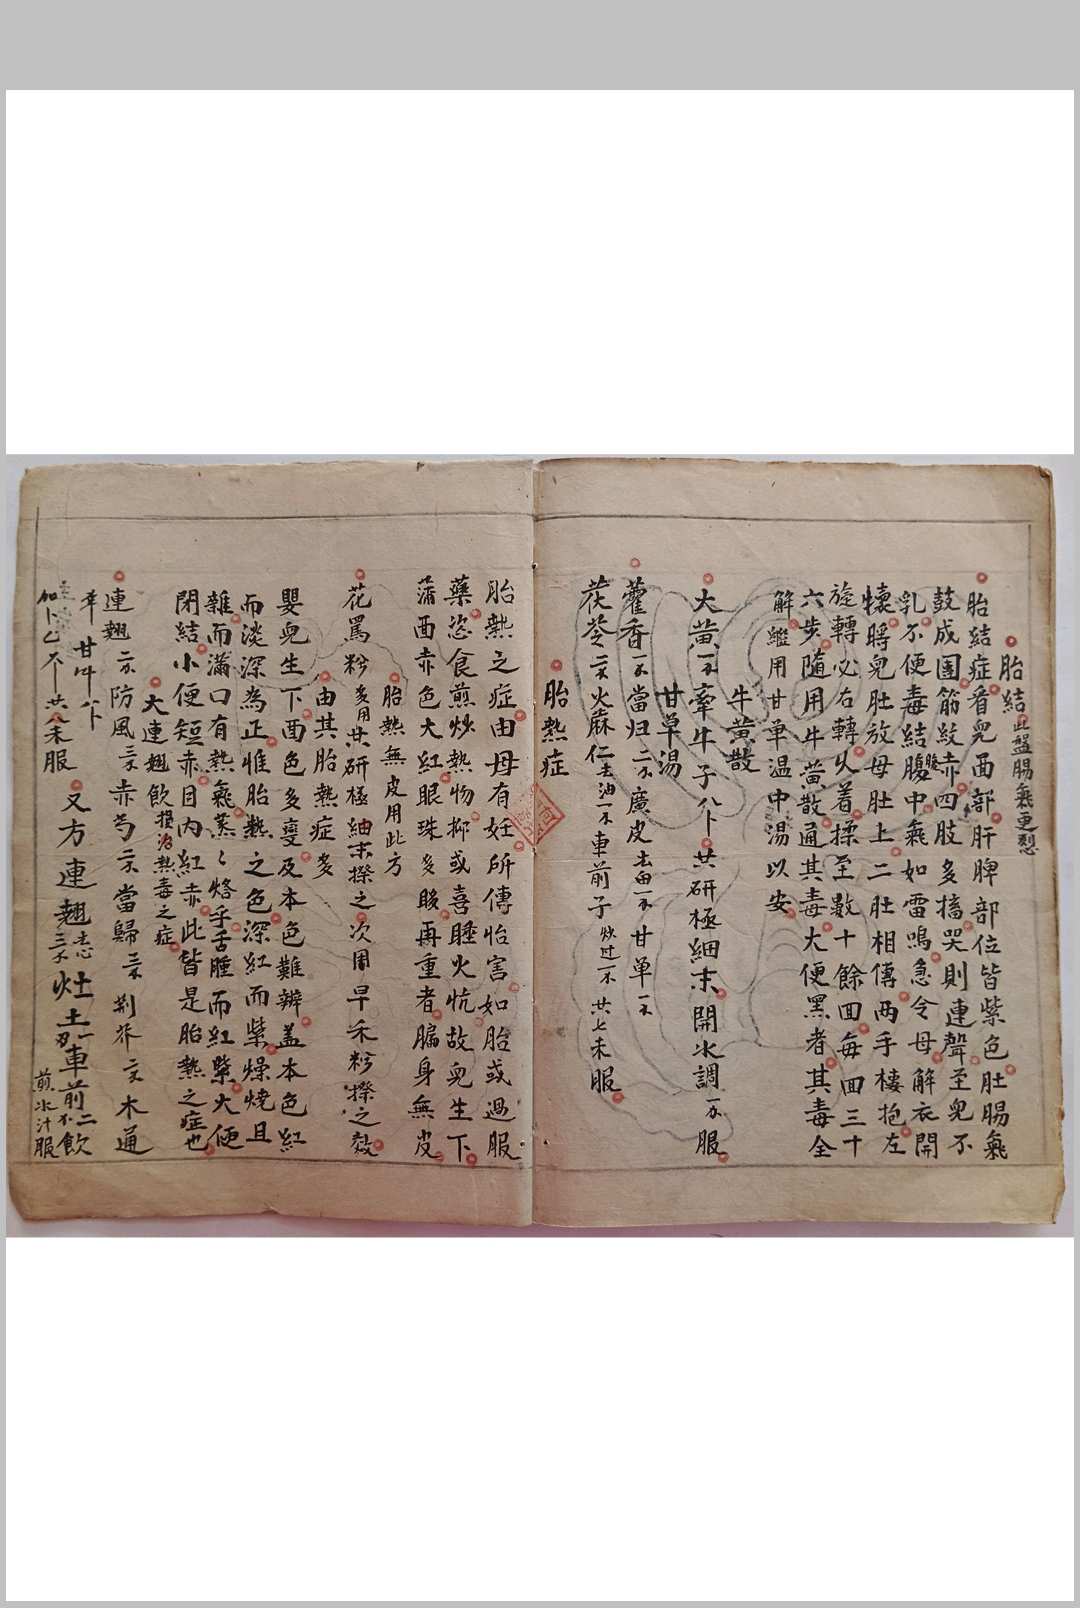 胎結此盤腸氣更烈
胎結症看兒面部肝脾部位皆紫色肚腸氣
鼓成團筋紋赤四肢多搐哭則連聲至兒不
乳不便毒結腹中氣如雷鳴急令母解衣開
懐將兒肚放母肚上二肚相傳两手摟抱左
旋轉必右轉乆着揉至數十餘回每回三十
六步隨用牛黃散通其毒大便黑者其毒全
解繼用甘草温中湯以安
牛黃散
大黃 牽牛子 共研極細末開水調 服
甘草湯
藿香 當归 廣皮 甘草
茯苓 火麻仁去油 車前子炒过 共七味服
胎熱症
胎熱之症由母有妊所傳怡害如胎或過服
藥恣食煎炒熱物抑或喜睡火炕故兒生下
滿面赤色大紅眼珠多眵再重者牖身無皮
胎熱無皮用此方
花罵粉多用共研極細末搽之次用早禾粉搽之效
由其胎熱症多
嬰兒生下面色多變及本色難辨盖本色紅
而淡深為正惟胎熱之色深紅而紫燥燒且
雜而滿口有熱氣蒸〻烙手舌腫而紅槳大便
閉結小便短赤目内紅赤此皆是胎熱之症也
大連翹飲摠治熱毒之症
連翹 防風 赤芍 當歸 荆芥 木通
甘艸
共八味服 又方連翹去心 灶土 車前 飲
煎水汁服